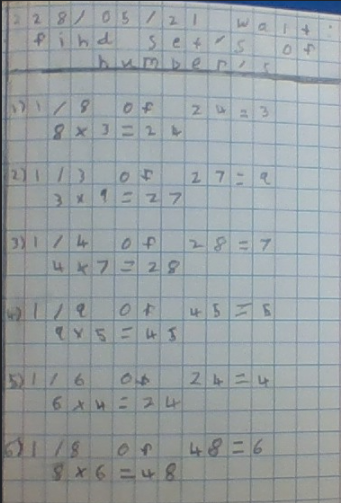 228/05/21 walt:
find set's of
number's
1) 1/8 of 24=3
8×3=24
2) 1/3 of 27=9
3×9=27
3) 1/4 of 28=7
4×7=28
4) 1/9 of 45=5
9×5=45
5) 1/6 of 24=4
6×4=24
6) 1/8 of 48=6
8×6=48